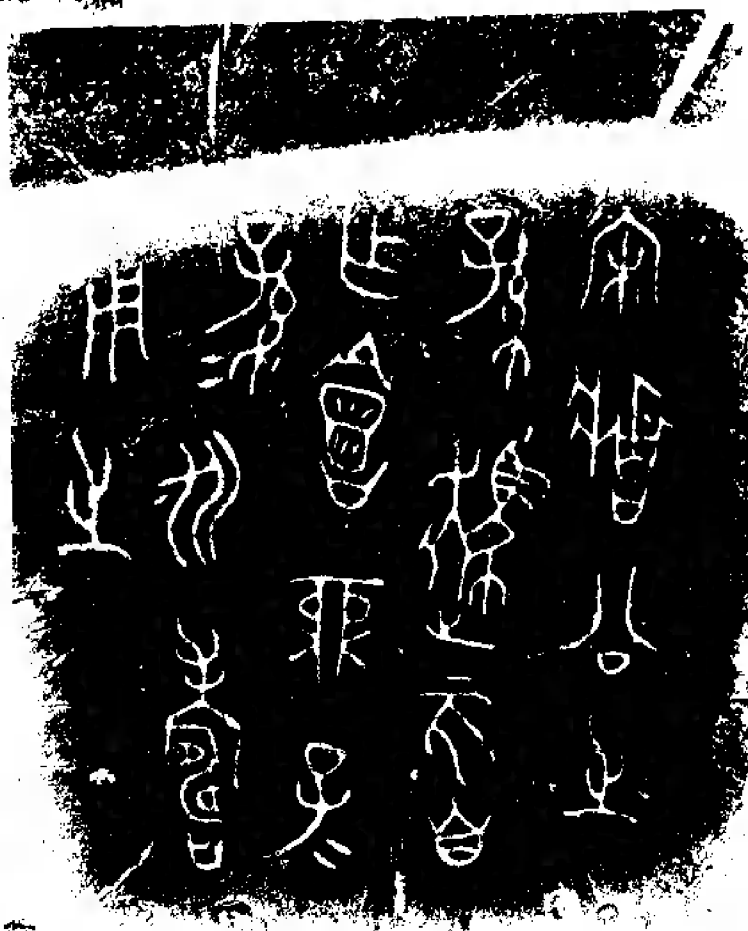 宋莊公之
孫趨亥自
乍會鼎子〓
孫〓永壽
用之